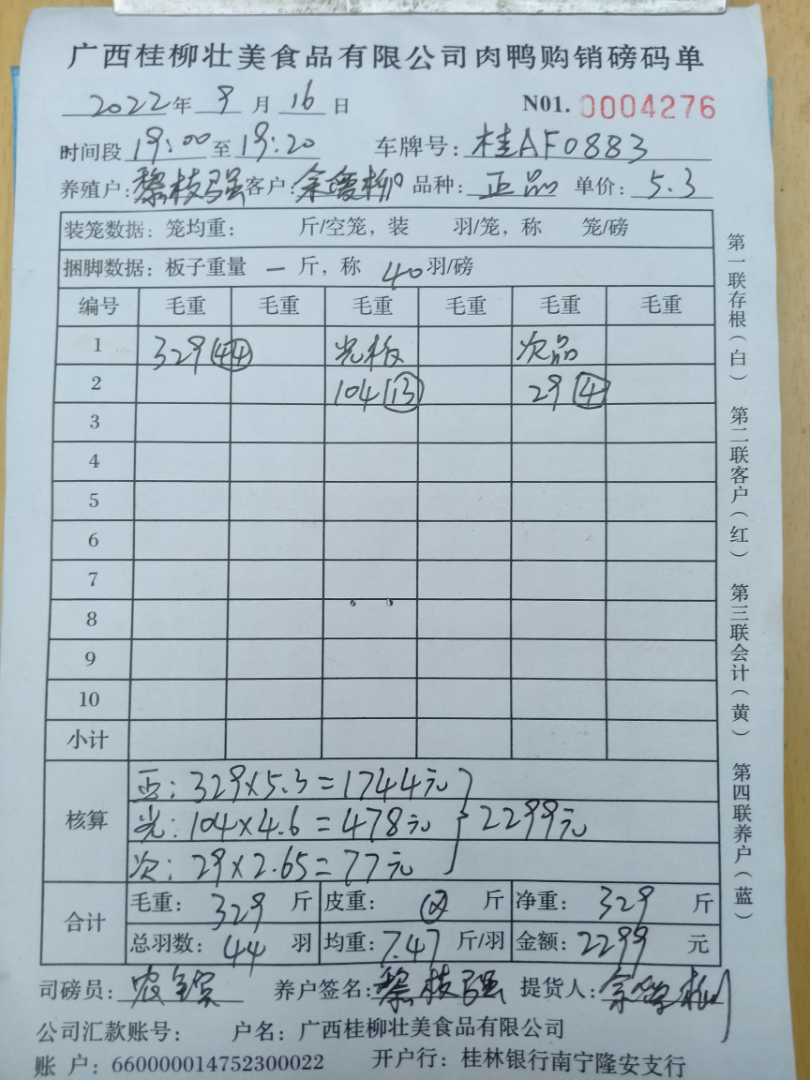 广西桂柳壮美食品有限公司肉鸭购销磅码单
2022年 9 月 16 日 N01. 0004276
时间段 19:00 至 19:20 车牌号: 桂AF0883
养殖户: 黎枝强 客户: 余 柳 品种: 正品 单价: 5.3
装笼数据: 笼均重: 斤/空笼, 装 羽/笼, 称 笼/磅
捆脚数据: 板子重量 一 斤, 称 40 羽/磅
编号 毛重 毛重 毛重 毛重 毛重 毛重
1 329 (44) 光板 次品
2 104 (13) 29 (4)
3
4
5
6
7
8
9
10
小计
核算
正: 329×5.3=1744元
光: 104×4.6=478元 } 2299元
次: 29×2.65=77元
合计
毛重: 329 斤 皮重: 斤 净重: 329 斤
总羽数: 44 羽 均重: 7.47 斤/羽 金额: 2299 元
司磅员: 农 养户签名: 黎枝强 提货人: 余 柳
公司汇款账号: 户名: 广西桂柳壮美食品有限公司
账 户: 660000014752300022 开户行: 桂林银行南宁隆安支行
第一联存根(白) 第二联客户(红) 第三联会计(黄) 第四联养户(蓝)